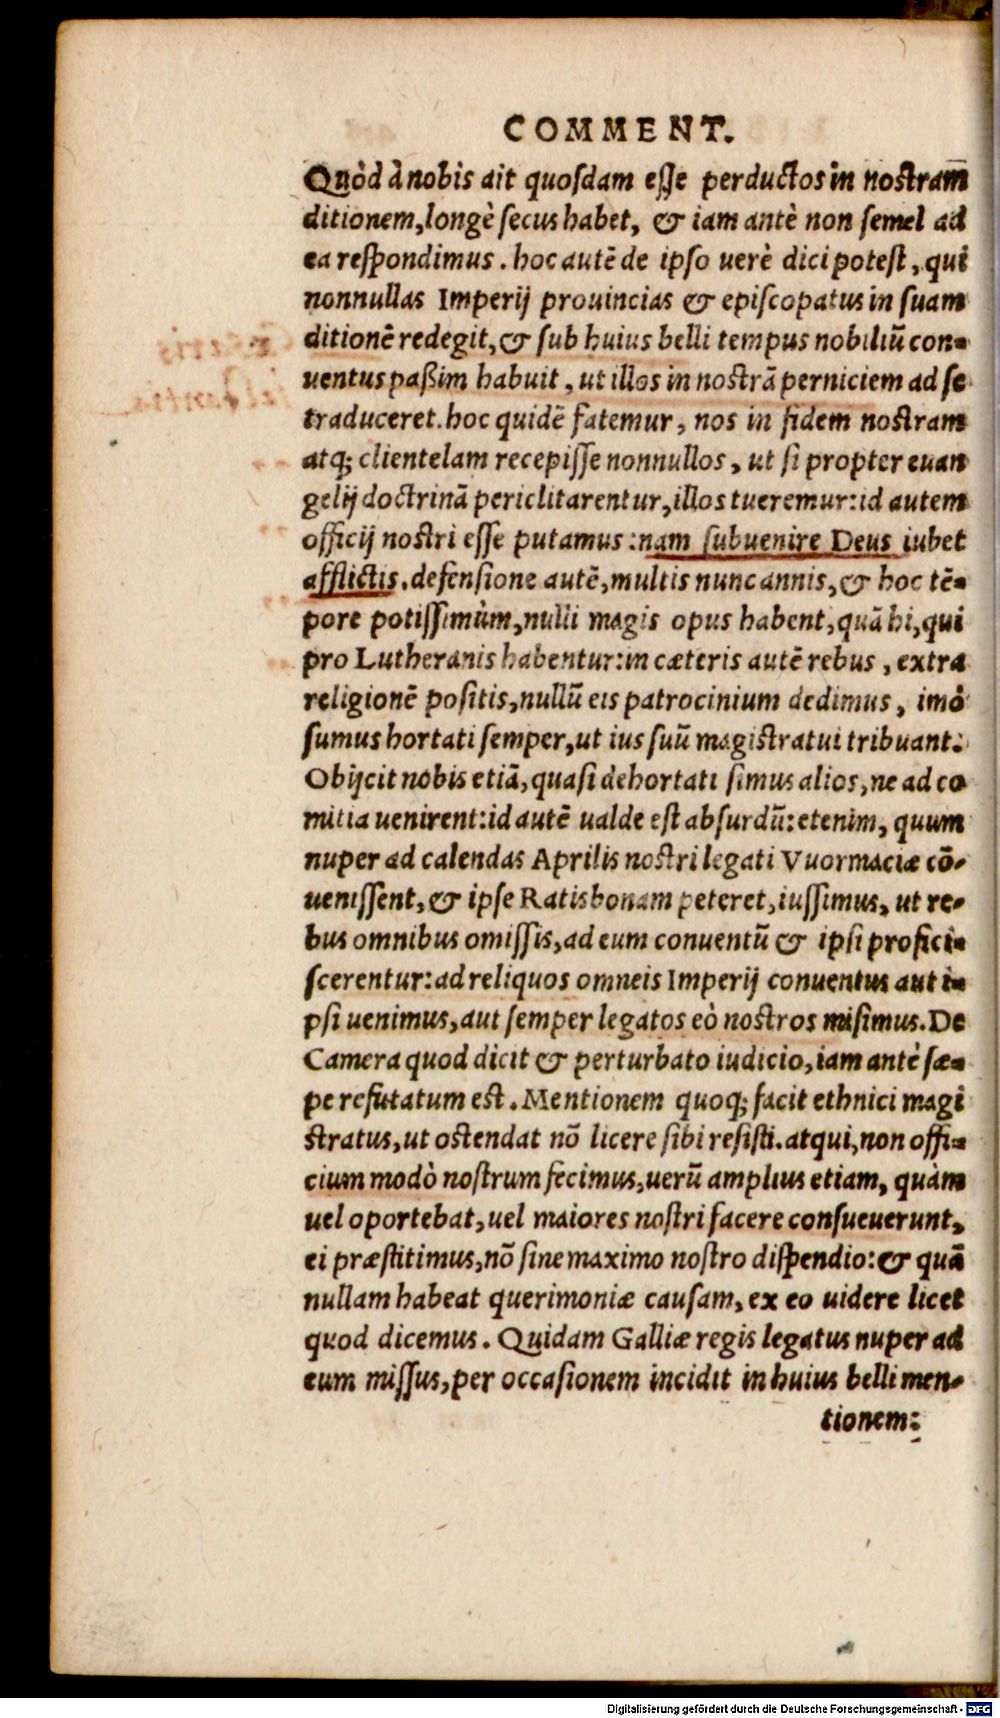 COMMENT.
Quòd à nobis ait quosdam esse perductos in nostram
ditionem, longè secus habet, & iam antè non semel ad
ea respondimus. hoc autē de ipso uerè dici potest, qui
nonnullas Imperij prouincias & episcopatus in suam
ditionē redegit, & sub huius belli tempus nobiliū con-
uentus paßim habuit, ut illos in nostrā perniciem ad se
traduceret. hoc quidē fatemur, nos in fidem nostram
atq; clientelam recepisse nonnullos, ut si propter euan
gelij doctrinā periclitarentur, illos tueremur: id autem
officij nostri esse putamus: nam subuenire Deus iubet
afflictis. defensione autē, multis nunc annis, & hoc tē-
pore potissimùm, nulli magis opus habent, quā hi, qui
pro Lutheranis habentur: in cæteris autē rebus, extra
religionē positis, nullū eis patrocinium dedimus, imò
sumus hortati semper, ut ius suū magistratui tribuant.
Obijcit nobis etiā, quasi dehortati simus alios, ne ad co
mitia uenirent: id autē ualde est absurdū: etenim, quum
nuper ad calendas Aprilis nostri legati Vuormaciæ cō-
uenissent, & ipse Ratisbonam peteret, iussimus, ut re-
bus omnibus omissis, ad eum conuentū & ipsi profici-
scerentur: ad reliquos omneis Imperij conuentus aut i-
psi uenimus, aut semper legatos eò nostros misimus. De
Camera quod dicit & perturbato iudicio, iam antè sæ-
pe refutatum est. Mentionem quoq; facit ethnici magi
stratus, ut ostendat nō licere sibi resisti. atqui, non offi-
cium modò nostrum fecimus, uerū amplius etiam, quàm
uel oportebat, uel maiores nostri facere consueuerunt,
ei præstitimus, nō sine maximo nostro dispendio: & quā
nullam habeat querimoniæ causam, ex eo uidere licet
quod dicemus. Quidam Galliæ regis legatus nuper ad
eum missus, per occasionem incidit in huius belli men-
tionem:
Digitalisierung gefördert durch die Deutsche Forschungsgemeinschaft - DFG